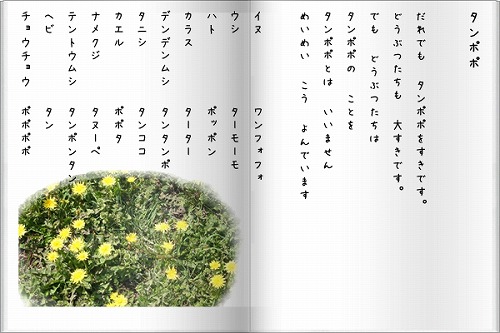 タンポポ
だれでも タンポポをすきです。
どうぶつたちも 大すきです。
でも どうぶつたちは
タンポポの ことを
タンポポとは いいません
めいめい こう よんでいます
イヌ ワンフォフォ
ウシ ターモーモ
ハト ポッポン
カラス ターター
デンデンムシ タンタンポ
タニシ タンココ
カエル ポポタ
ナメクジ タヌーペ
テントウムシ タンポンタン
ヘビ タン
チョウチョウ ポポポポ